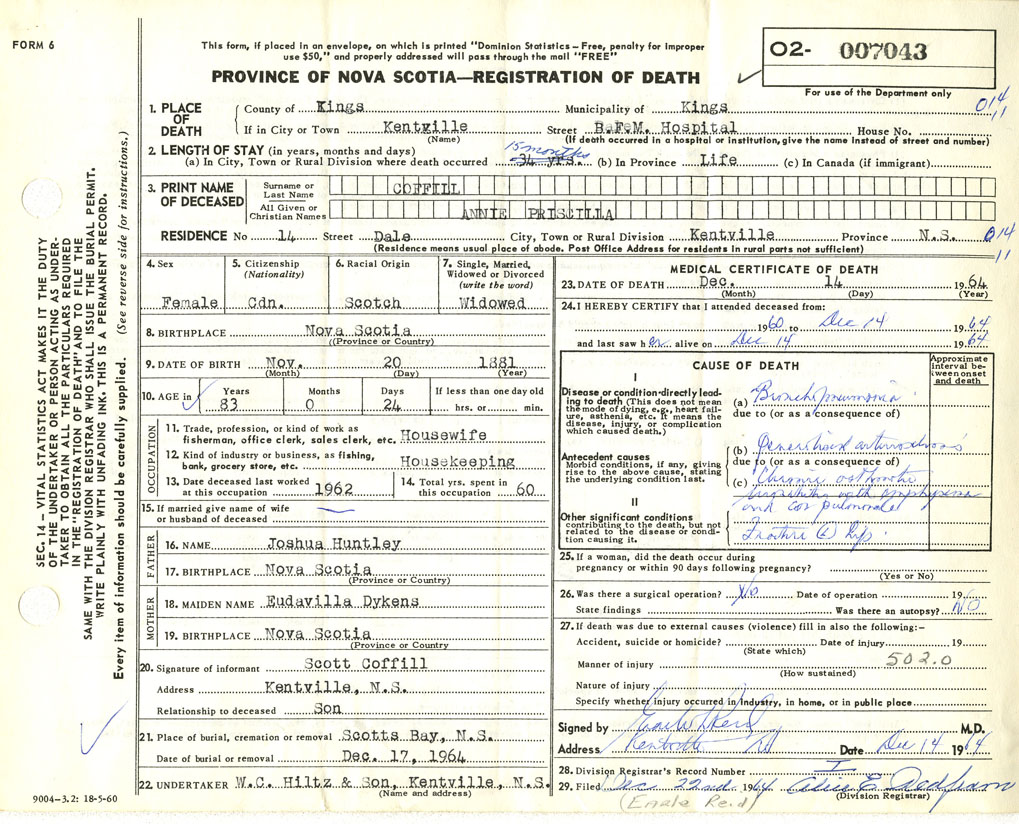 FORM 6
This form, if placed in an envelope, on which is printed "Dominion Statistics – Free, penalty for improper
use $50," and properly addressed will pass through the mail "FREE"
PROVINCE OF NOVA SCOTIA—REGISTRATION OF DEATH
O2- 007043
For use of the Department only
014
11
1. PLACE OF DEATH
County of Kings Municipality of Kings
If in City or Town Kentville Street B.F.M. Hospital House No.
(Name) (If death occurred in a hospital or institution, give the name instead of street and number)
2. LENGTH OF STAY (in years, months and days)
15 months
(a) In City, Town or Rural Division where death occurred 34 yrs. (b) In Province Life (c) In Canada (if immigrant)
3. PRINT NAME OF DECEASED
Surname or Last Name COFFILL
All Given or Christian Names ANNIE PRISCILLA
RESIDENCE No 14 Street Dale City, Town or Rural Division Kentville Province N.S. 014
11
(Residence means usual place of abode. Post Office Address for residents in rural parts not sufficient)
4. Sex
Female
5. Citizenship
(Nationality)
Cdn.
6. Racial Origin
Scotch
7. Single, Married, Widowed or Divorced
(write the word)
Widowed
8. BIRTHPLACE Nova Scotia
((Province or Country)
9. DATE OF BIRTH Nov. 20 1881
(Month) (Day) (Year)
10. AGE in
Years Months Days If less than one day old
83 0 24 hrs. or min.
OCCUPATION
11. Trade, profession, or kind of work as
fisherman, office clerk, sales clerk, etc. Housewife
12. Kind of industry or business, as fishing,
bank, grocery store, etc. Housekeeping
13. Date deceased last worked
at this occupation 1962
14. Total yrs. spent in
this occupation 60
15. If married give name of wife
or husband of deceased —
FATHER
16. NAME Joshua Huntley
17. BIRTHPLACE Nova Scotia
(Province or Country)
MOTHER
18. MAIDEN NAME Eudavilla Dykens
19. BIRTHPLACE Nova Scotia
(Province or Country
20. Signature of informant Scott Coffill
Address Kentville, N.S.
Relationship to deceased Son
21. Place of burial, cremation or removal Scotts Bay, N.S.
Date of burial or removal Dec. 17, 1964
22. UNDERTAKER W.C. Hiltz & Son, Kentville, N.S.
(Name and address)
MEDICAL CERTIFICATE OF DEATH
23. DATE OF DEATH Dec. 14 1964
(Month) (Day) (Year)
24. I HEREBY CERTIFY that I attended deceased from:
1960 to Dec 14 1964
and last saw her alive on Dec 14 1964
CAUSE OF DEATH
Approximate interval between onset and death
I
Disease or condition directly leading to death (This does not mean the mode of dying, e.g., heart failure, asthenia, etc. It means the disease, injury, or complication which caused death.)
(a) Bronchopneumonia
due to (or as a consequence of)
Antecedent causes
Morbid conditions, if any, giving rise to the above cause, stating the underlying condition last.
(b) Generalized arteriosclerosis
due to (or as a consequence of)
(c) Chronic asthmatic
bronchitis with emphysema
and cor pulmonale
II
Other significant conditions
contributing to the death, but not related to the disease or condition causing it.
Fracture (L) hip
25. If a woman, did the death occur during
pregnancy or within 90 days following pregnancy?
(Yes or No)
26. Was there a surgical operation? No Date of operation 19
State findings Was there an autopsy? NO
27. If death was due to external causes (violence) fill in also the following:–
Accident, suicide or homicide? Date of injury 19
(State which)
Manner of injury 502.0
(How sustained)
Nature of injury
Specify whether injury occurred in industry, in home, or in public place
Signed by M.D.
Address Kentville NS Date Dec 14 1964
28. Division Registrar's Record Number
29. Filed Dec 22nd 1964
(Division Registrar)
SEC. 14 – VITAL STATISTICS ACT MAKES IT THE DUTY
OF THE UNDERTAKER OR PERSON ACTING AS UNDER-
TAKER TO OBTAIN ALL THE PARTICULARS REQUIRED
IN THE "REGISTRATION OF DEATH" AND TO FILE THE
SAME WITH THE DIVISION REGISTRAR WHO SHALL ISSUE THE BURIAL PERMIT.
WRITE PLAINLY WITH UNFADING INK. THIS IS A PERMANENT RECORD.
Every item of information should be carefully supplied. (See reverse side for instructions.)
9004–3.2: 18-5-60